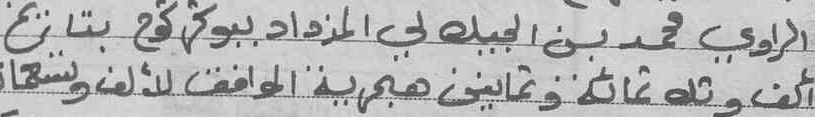 الراوي محمد بن الجيلالي المزداد ببوكركوح بتاريخ
ألف وثلاثمائة وثمانين هجرية الموافق للألف وتسعما